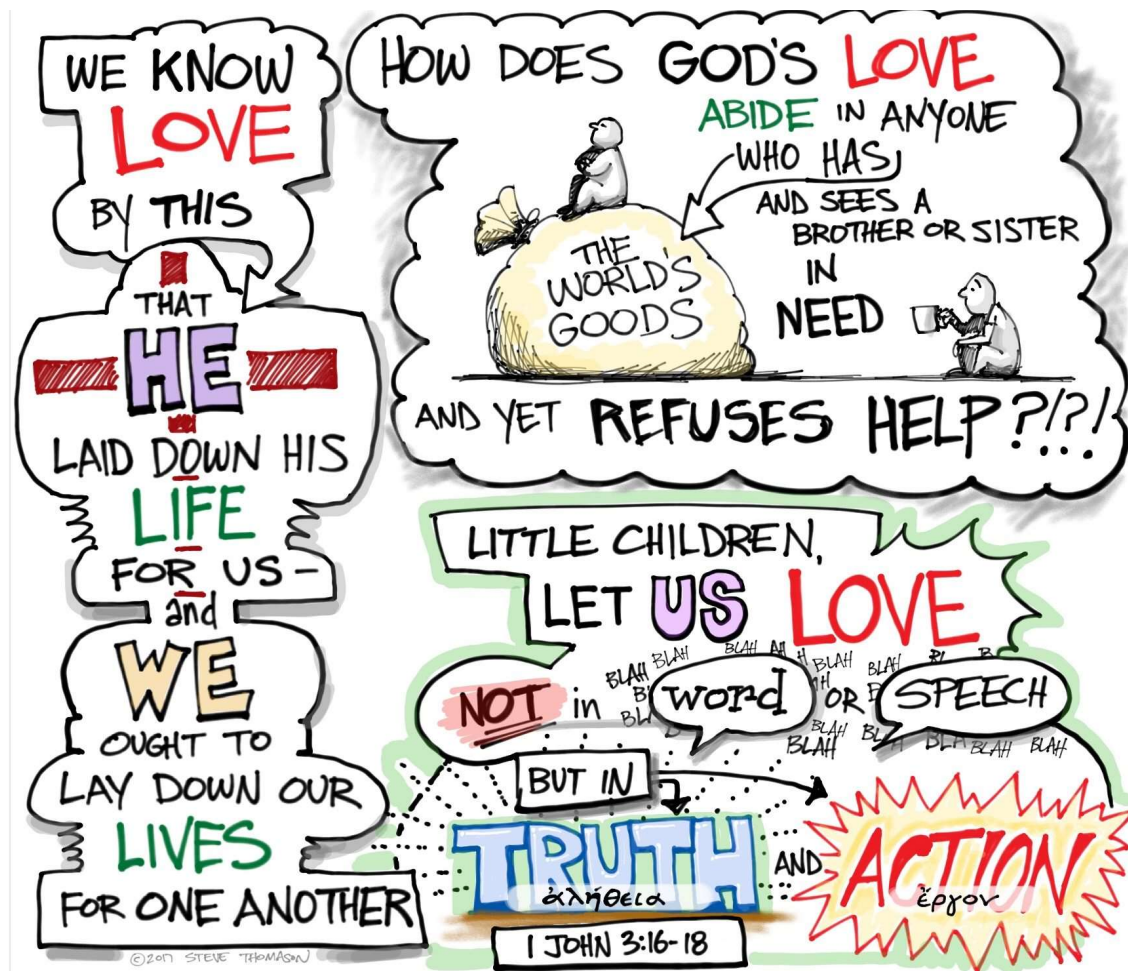 WE KNOW
LOVE
BY THIS
THAT
HE
LAID DOWN HIS
LIFE
FOR US -
and
WE
OUGHT TO
LAY DOWN OUR
LIVES
FOR ONE ANOTHER
©2017 STEVE THOMASON
HOW DOES GOD'S LOVE
ABIDE IN ANYONE
WHO HAS
THE
WORLD'S
GOODS
AND SEES A
BROTHER OR SISTER
IN
NEED
AND YET REFUSES HELP?!?!
LITTLE CHILDREN,
LET US LOVE
BLAH BLAH BLAH BLAH BLAH
BLAH
NOT in word OR SPEECH
BLAH BLAH BLAH BLAH
BUT IN
TRUTH AND ACTION
ἀλήθεια ἔργον
1 JOHN 3:16-18